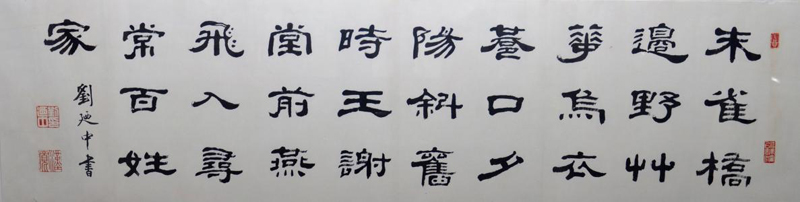 朱雀橋
邊野艸
華烏衣
巷口夕
陽斜舊
時王謝
堂前燕
飛入尋
常百姓
家
劉廼中書